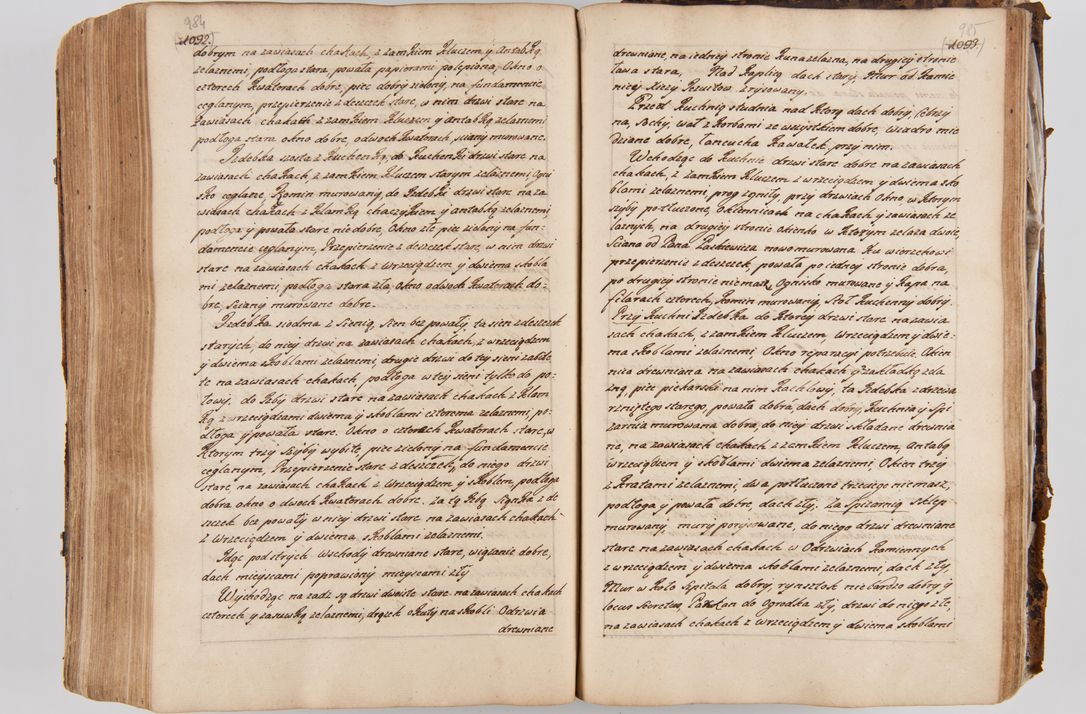 984
1092.
dobrym na zawiasach chakach, z zamkiem kluczem y antabką
zelaznemi, podłoga stara, powała papierami polepiona, okno o
czterech kwaterach dobre, piec dobry zielony, na fundamencie
ceglanym, przepierzenie z deszczek stare, w nim drzwi stare na
zawiasach chakach z zamkiem kluczem y antabką zelaznemi
podłoga stara okno dobre, o dwoch kwaterach, sciany murowane.
Izdebka szosta z kuchenką, do kuchenki drzwi stare na
zawiasach chakach, z zamkiem kluczem starym zelaznemi, ogni
sko ceglane, komin murowany, do izdebki drzwi stare na za
wiasach chakach z klamką chaczykiem y antabką zelaznemi
podłoga y powała stare nie dobre, okno złe piec zielony na fun=
damencie ceglanym, Przepierzenie z deszczek stare, w nim drzwi
stare na zawiasach chakach z wrzeciądzem y dwiema skobla
mi zelaznemi, podłoga stara zła okno o dwoch kwaterach do=
bre, sciany murowane dobre.
Izdebka siodma z sienią, sien bez powały, ta sien z deszczek
starych, do niey drzwi na zawiasach chakach, z wrzeciądzem
y dwiema skoblami zelaznemi, drugie drzwi do tey sieni zabite
te na zawiasach chakach, podłoga w tey sieni tylko do po=
łowy. do izby drzwi stare na zawiasach chakach z klam
ką z wrzeciądzami dwiema y skoblami czterema zelaznemi, po=
dłoga y powała stare. Okno o czterech kwaterach stare, w
ktorym trzy szyby wybite, piec zielony na fundamencie
ceglanym, Przepierzenie stare z deszczek, do niego drzwi
stare, na zawiasach chakach z wrzeciądzem y skoblem, podłoga
dobra okno o dwoch kwaterach dobre. Za tą izbą z de
szczek bez powały w niey drzwi stare na zawiasach chakach
z wrzeciądzem y dwiema skoblami zelaznemi.
Idąc pod strych wschody drewniane stare, wiązanie dobre,
dach mieyscami poprawiony mieyscami zły
Wychodząc na zadz są drzwi dwoiste stare na zawiasach chakach
czterech y zasuwką zelaznemi, drążek okuty na skobli. Odrzwia
drewniane
985
1093.
drewniane, na iedney stronie kuna zelazna, na drugiey stronie
ława stara, Nad Kaplicą dach stary, Mur od kamie
nicy Xiezy zrysowany.
Przed kuchnią studnia nad ktorą dach dobry,
na, sochy, wał z korbami ze wszystkiem dobre, wiadro mie
dziane dobre, łancucha kawałek, przy nim.
Wchodząc do kuchni drzwi stare dobre na zawiasach
chakach, z zamkiem kluczem z wrzeciądzem y dwiema sko
blami zelaznemi prog zgniły, przy drzwiach okno w ktorym
szyby potłuczone, okiennicach na chakach y zawiasach ze
laznych, na drugiey stronie okienko w ktorym zelaza dwoie,
sciana od Pana Paskiewicza nowo murowana ku wierzchowi
przepierzenie z deszczek, powała po iedney stronie dobra,
po drugiey stronie niemasz, Ognisko murowane y kapa na
filarach czterech, komin murowany, stoł kuchenny dobry
Przy kuchni Izdebka do ktorey drzwi stare na zawia
sach chakach, z zamkiem kluczem, wrzeciądzem y dwie=
ma skoblami zelaznemi, Okno reparacyi potrzebuie, Okien
nica drewniana na zawiasach chakach y zakładką zela
zną, piec piekarski na nim kachlowy, ta Izdebka z drzewa
rzniętego starego, powała dobra, dach dobry, kuchnia y spi
zarnia murowana dobra, do niey drzwi składane drewnia
ne, na zawiasach chakach z zamkiem kluczem, antabą
wrzeciądzem y skoblami dwiema zelaznemi, Okien trzy
z kratami zelaznemi, dwa potłuczone trzeciego niemasz,
podłoga y powała dobre, dach zły. Za spizarnią sklep
murowany, mury porysowane, do niego drzwi drewniane
stare na zawiasach chakach w odrzwiach kamiennych
z wrzeciądzem y dwiema skoblami zelaznemi, dach zły,
Mur w koło Szpitala dobry, rynsztok nie bardzo dobry y
locus secretus, Parkan do ogrodka zły, drzwi do niego złe,
na zawiasach chakach z wrzeciądzem y dwiema skoblami